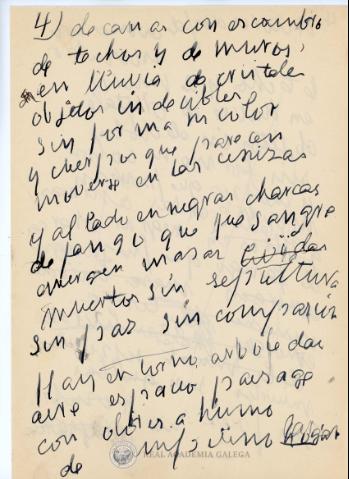 4) de camas con escombro
de techos y de muros,
en lluvia de cristales
objetos indecibles
sin forma ni color
y cuerpos que parecen
moverse en las cenizas
y al lado en negras charcas
de fango que fue sangre
emergen masas
muertos sin sepultura
sin paz sin compasión
Hay en torno arboledas
aire espacio paisage
con olores a humo
de
REAL ACADEMIA GALEGA